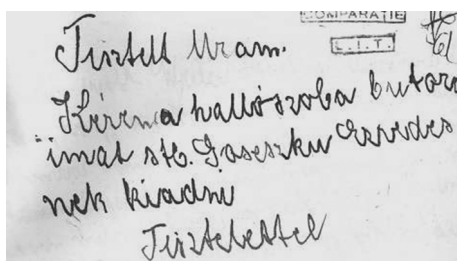 COMPARATIE
L.I.T.
Tisztelt Uram.
Kérem a hallószoba butora
imat stb. Goseszku Ezredes
nek kiadni
Tisztelettel